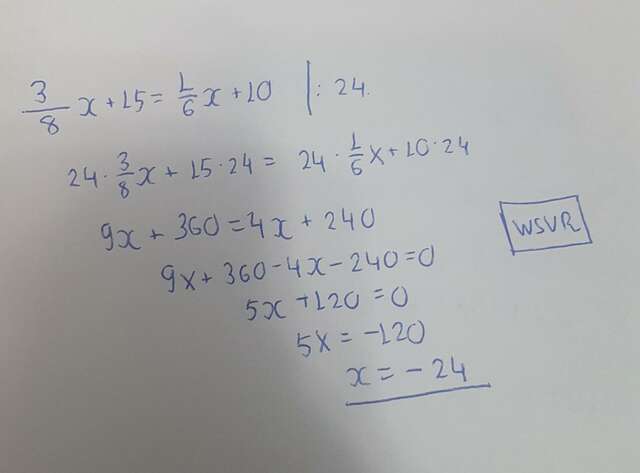 3/8 x + 15 = 1/6 x + 10 |: 24.
24 · 3/8 x + 15 · 24 = 24 · 1/6 x + 10 · 24
9x + 360 = 4x + 240
WSVR
9x + 360 - 4x - 240 = 0
5x + 120 = 0
5x = -120
x = - 24